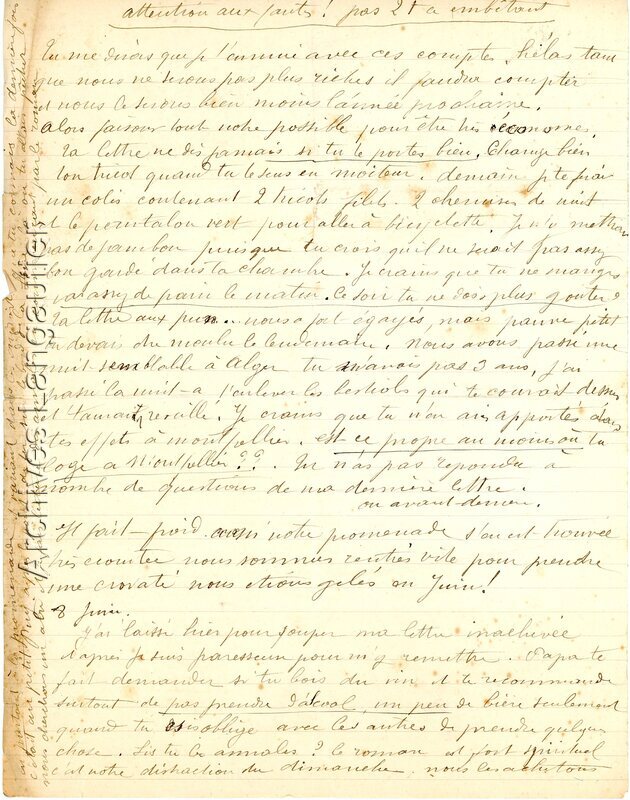 attention aux fautes! pas 2 t a embêtant
Tu me diras que je t'ennuie avec ces comptes, hélas tant
que nous ne serons pas plus riches il faudra compter
et nous le serons bien moins l'année prochaine.
alors faisons tout notre possible pour être très économes.
Ta lettre ne dis jamais si tu te portes bien. Change bien
ton tricot quand tu te sens en moiteur. demain je te ferai
un colis contenant 2 tricots filet. 2 chemises de nuit
et le pantalon vert pour aller à bicyclette. Je n'y mettrai
pas de jambon puisque tu crois qu'il ne serait pas assez
bon gardé dans ta chambre. Je crains que tu ne manges
pas assez de pain le matin. Ce soir tu ne dois plus gouter
Ta lettre aux pun... nous a fait égayés, mais pauvre petit
tu devais être moulu le lendemain. Nous avons passé une
nuit semblable à Alger tu n'avais pas 3 ans, j'ai
passé la nuit à t'enlever les bestiols qui te courait dessus
et t'aurait reveillé. Je crains que tu n'en ais apportés dans
tes effets à Montpellier. est ce propre au moins où tu
loge a Montpellier?? Tu n'as pas repondu à
nombre de questions de ma dernière lettre.
ou avant-dernier.
Il fait froid aussi notre promenade s'en est trouvée
très écourtée nous sommes rentrés vite pour prendre
une cravate nous étions gelés en Juin!
8 Juin.
J'ai laissé hier pour souper ma lettre inachevée
et après je suis paresseux pour m'y remettre. Papa te
fait demander si tu bois du vin et te recommande
surtout de pas prendre d'alcool, un peu de bière seulement
quand tu es obligé avec les autres de prendre quelque
chose. Lis tu les annales? le roman est fort spirituel
c'est notre distraction du dimanche. nous les achetons
©Archives Langautier